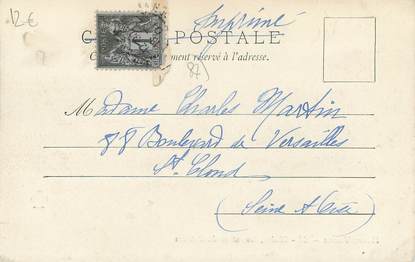 12 €
Imprimé
CARTE POSTALE
Ce côté est exclusivement réservé à l'adresse.
87
Madame Charles Martin
88 Boulevard de Versailles
St. Cloud
(Seine et Oise)